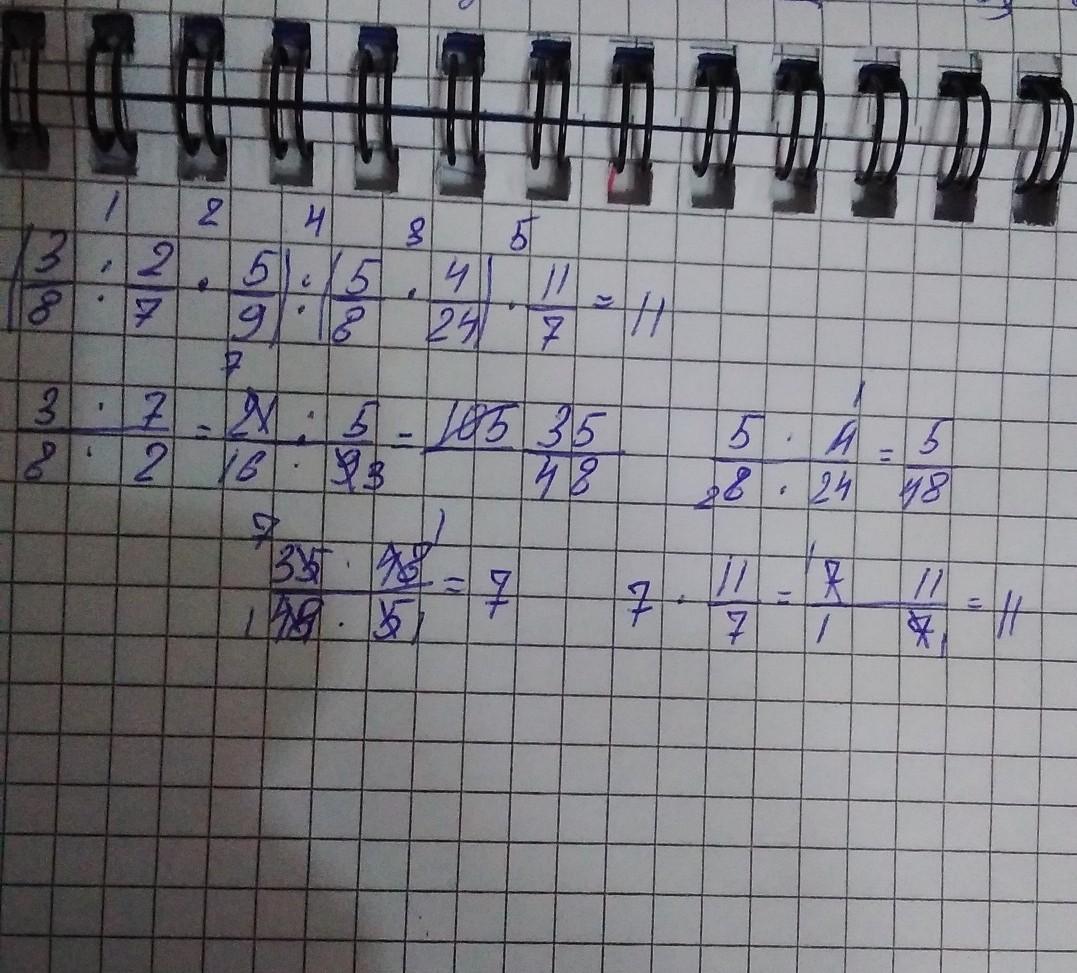 1 2 4 3 5
(3/8 : 2/7 · 5/9) : (5/8 · 4/24) · 11/7 = 11
3/8 · 7/2 = 21/16 · 5/9 3 = 105 35/48 5/28 · 4/24 = 5/48
7 35/49 · 48/5 1 = 7 7 · 11/7 = 7/1 11/7 = 11